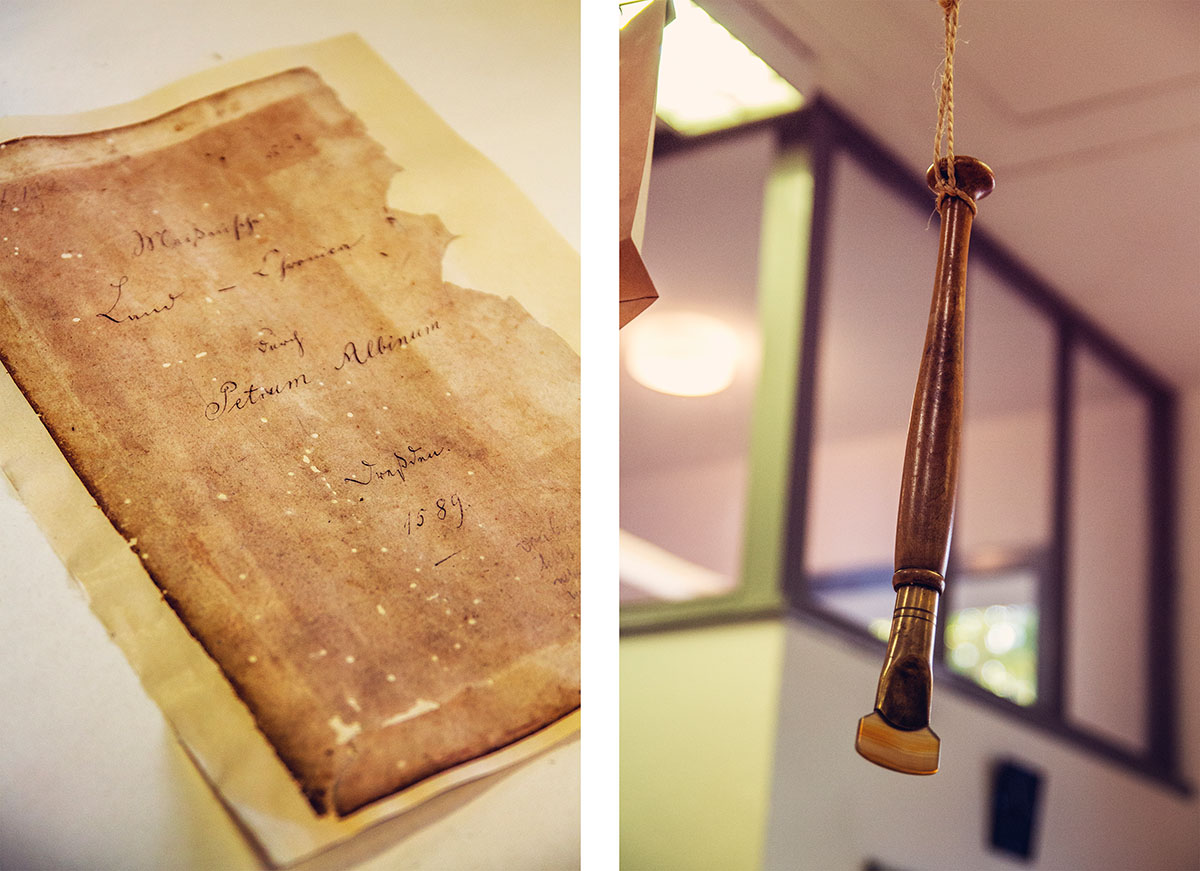 Meißnische
Land - Chronica
durch
Petrum Albinum
Dreßden.
1589.